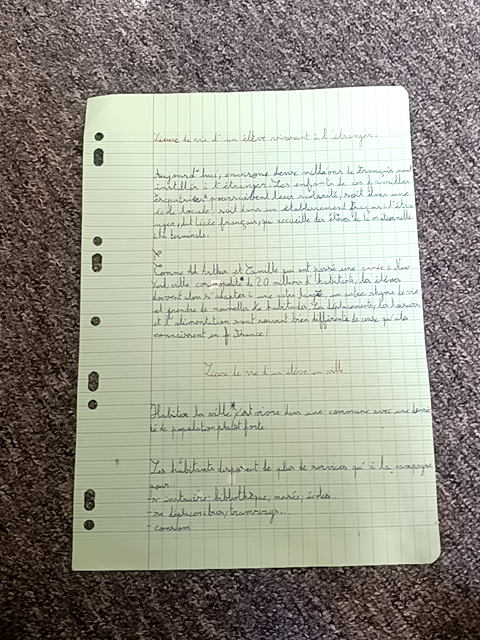 Lieux de vie d'un élève vivant à l'étranger.
Aujourd'hui, environs deux millions de français sont
installés à l'étranger. Les enfants de ces familles
expatriées* poursuivent leur scolarité, soit dans une
école locale, soit dans un établissement français à l'étran
ger, dit lycée français, qui accueille des élèves de la maternelle
à la terminale.
Comme Arthur et Camille qui ont passé une année à New
York, ville cosmopolite* de 20 millions d'habitants, les élèves
doivent alors s'adapter à une autre langue, un autre rythme de vie
et prendre de nouvelles habitudes. Les déplacements, les horaires
et l'alimentation sont souvent bien différents de ceux qu'ils
connaissent en France!
Lieux de vie d'un élève en ville
Habiter la ville*, c'est vivre dans une commune avec une densi
té de population plutôt forte.
Les habitants disposent de plus de services qu'à la campagne
pour:
-s'instruire: bibliothèque, musée, écoles...
-se déplacer: bus, tramways...
-consom